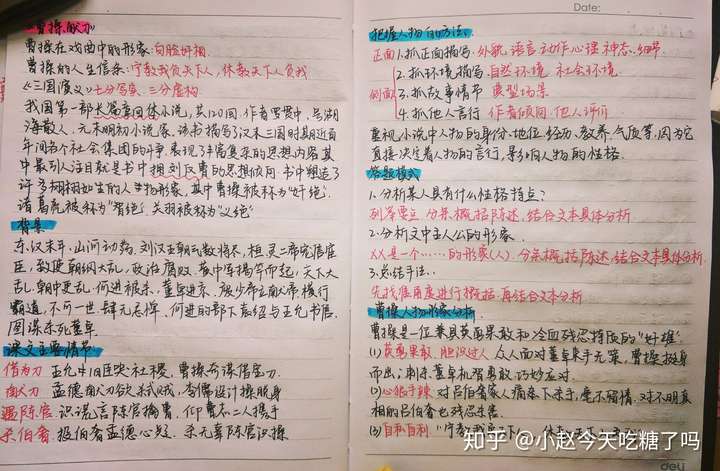 曹操献刀
曹操在戏曲中的形象:白脸奸相
曹操的人生信条:宁教我负天下人,休教天下人负我
《三国演义》七分写实,三分虚构
我国第一部长篇章回体小说,共120回.作者罗贯中,号湖
海散人,元末明初小说家,该书描写了汉末三国时期近百
年间各个社会集团的斗争,表现了丰富复杂的思想内容其
中最引人注目就是书中拥刘反曹的思想倾向.书中塑造了
许多栩栩如生的人物形象,其中曹操被称为"奸绝"
诸葛亮被称为"智绝",关羽被称为"义绝"
背景
东汉末年,山河动荡,刘汉王朝气数将尽,桓灵二帝宠信宦
臣,致使朝纲大乱,政治腐败,黄巾军揭竿而起,天下大
乱,朝中更乱,何进被杀,董卓进京,废少帝立献帝,横行
霸道,不可一世,肆无忌惮,何进的部下袁绍与王允书信,
图谋杀死董卓.
课文主要情节
借为刀 王允生旧臣哭社稷,曹操奇谋借宝刀.
献刀 孟德献刀欲弑贼,李儒设计搜身
遇陈宫 识谎言陈宫擒曹,仰曹不二人携手
杀伯奢 报伯奢孟德心疑,杀无辜陈宫识操
Date:
把握人物的方法
正面 1.抓正面描写.外貌,语言,动作,心理,神态,细节
2.抓环境描写.自然环境,社会环境
侧面 3.抓故事情节 典型场景
4.抓他人言行 作者倾向,他人评价
重视小说中人物的身份、地位、经历、教养、气质等,因为它
直接决定着人物的言行,影响人物的性格.
答题模式
1.分析某人具有什么性格特点?
列举要点,分条概括陈述,结合文本具体分析
2.分析文中主人公的形象.
XX是一个……的形象(人),分条概括陈述,结合文本具体分析
3.总结手法..
先找准角度进行概括,再结合文本分析
曹操人物形象分析
曹操是一位兼具英勇果敢和冷血残忍特质的"奸雄"
(1)英勇果敢,胆识过人 众人面对董卓束手无策,曹操挺身
而出;刺杀董卓机智勇敢,巧妙应对.
(2)心狠手辣 对吕伯奢家人痛杀下杀手,毫不留情,对不明真
相的吕伯奢也残忍杀害
(3)自私自利 "宁教我负天下人,休教天下人负我"
知乎 @小赵今天吃糖了吗
deli